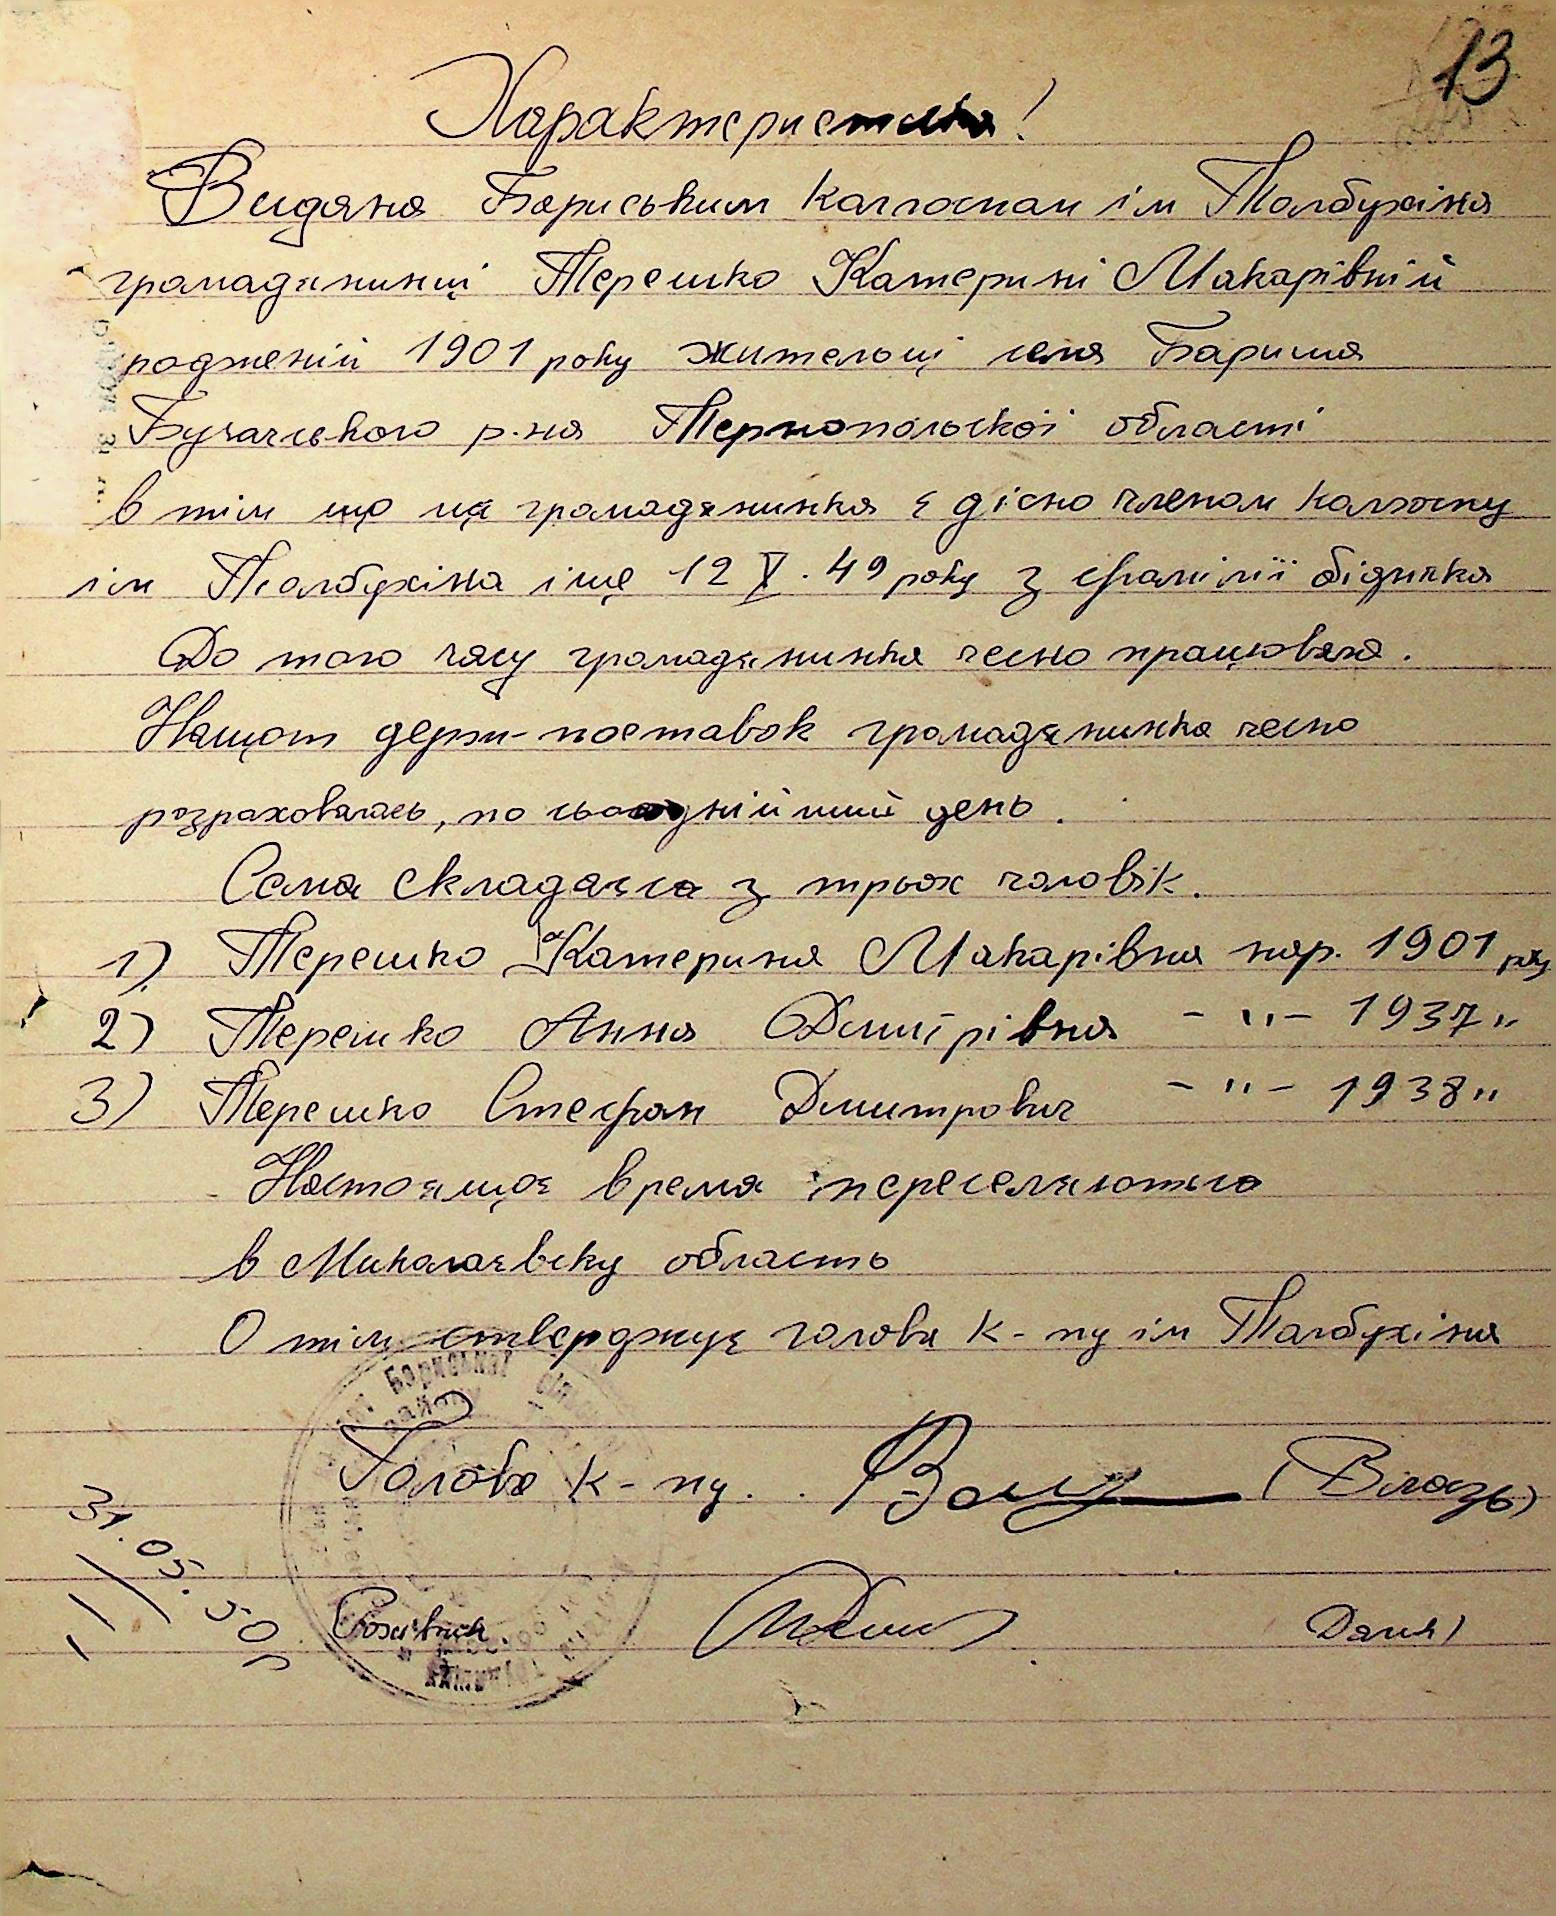 13
Характеристика!
Видана Бариським колгоспом ім Толбухіна
громадянинці Терешко Катерині Макарівній
родженій 1901 року жительці села Бариша
Бучачського р-на Тернопольскої області
в тім що ця громадянинка є дісно членом колгоспу
ім Толбухіна іще 12 V. 49 року з фамілії бідняка
До того часу громадянинка чесно працювала.
Нащот держ-поставок громадянинка чесно
розраховалась, по сьогоднійший день.
Семя складаєся з трьох чоловік.
1) Терешко Катерина Макарівна нар. 1901 року
2) Терешко Анна Дмитрівна - " - 1937 "
3) Терешко Стефан Дмитрович - " - 1938 "
Настояще время переселяютьсо
в Миколаєвску область
О тім стверджує голова к-пу ім Толбухіна
Голова к-пу. (Влазь)
31.05.50 р